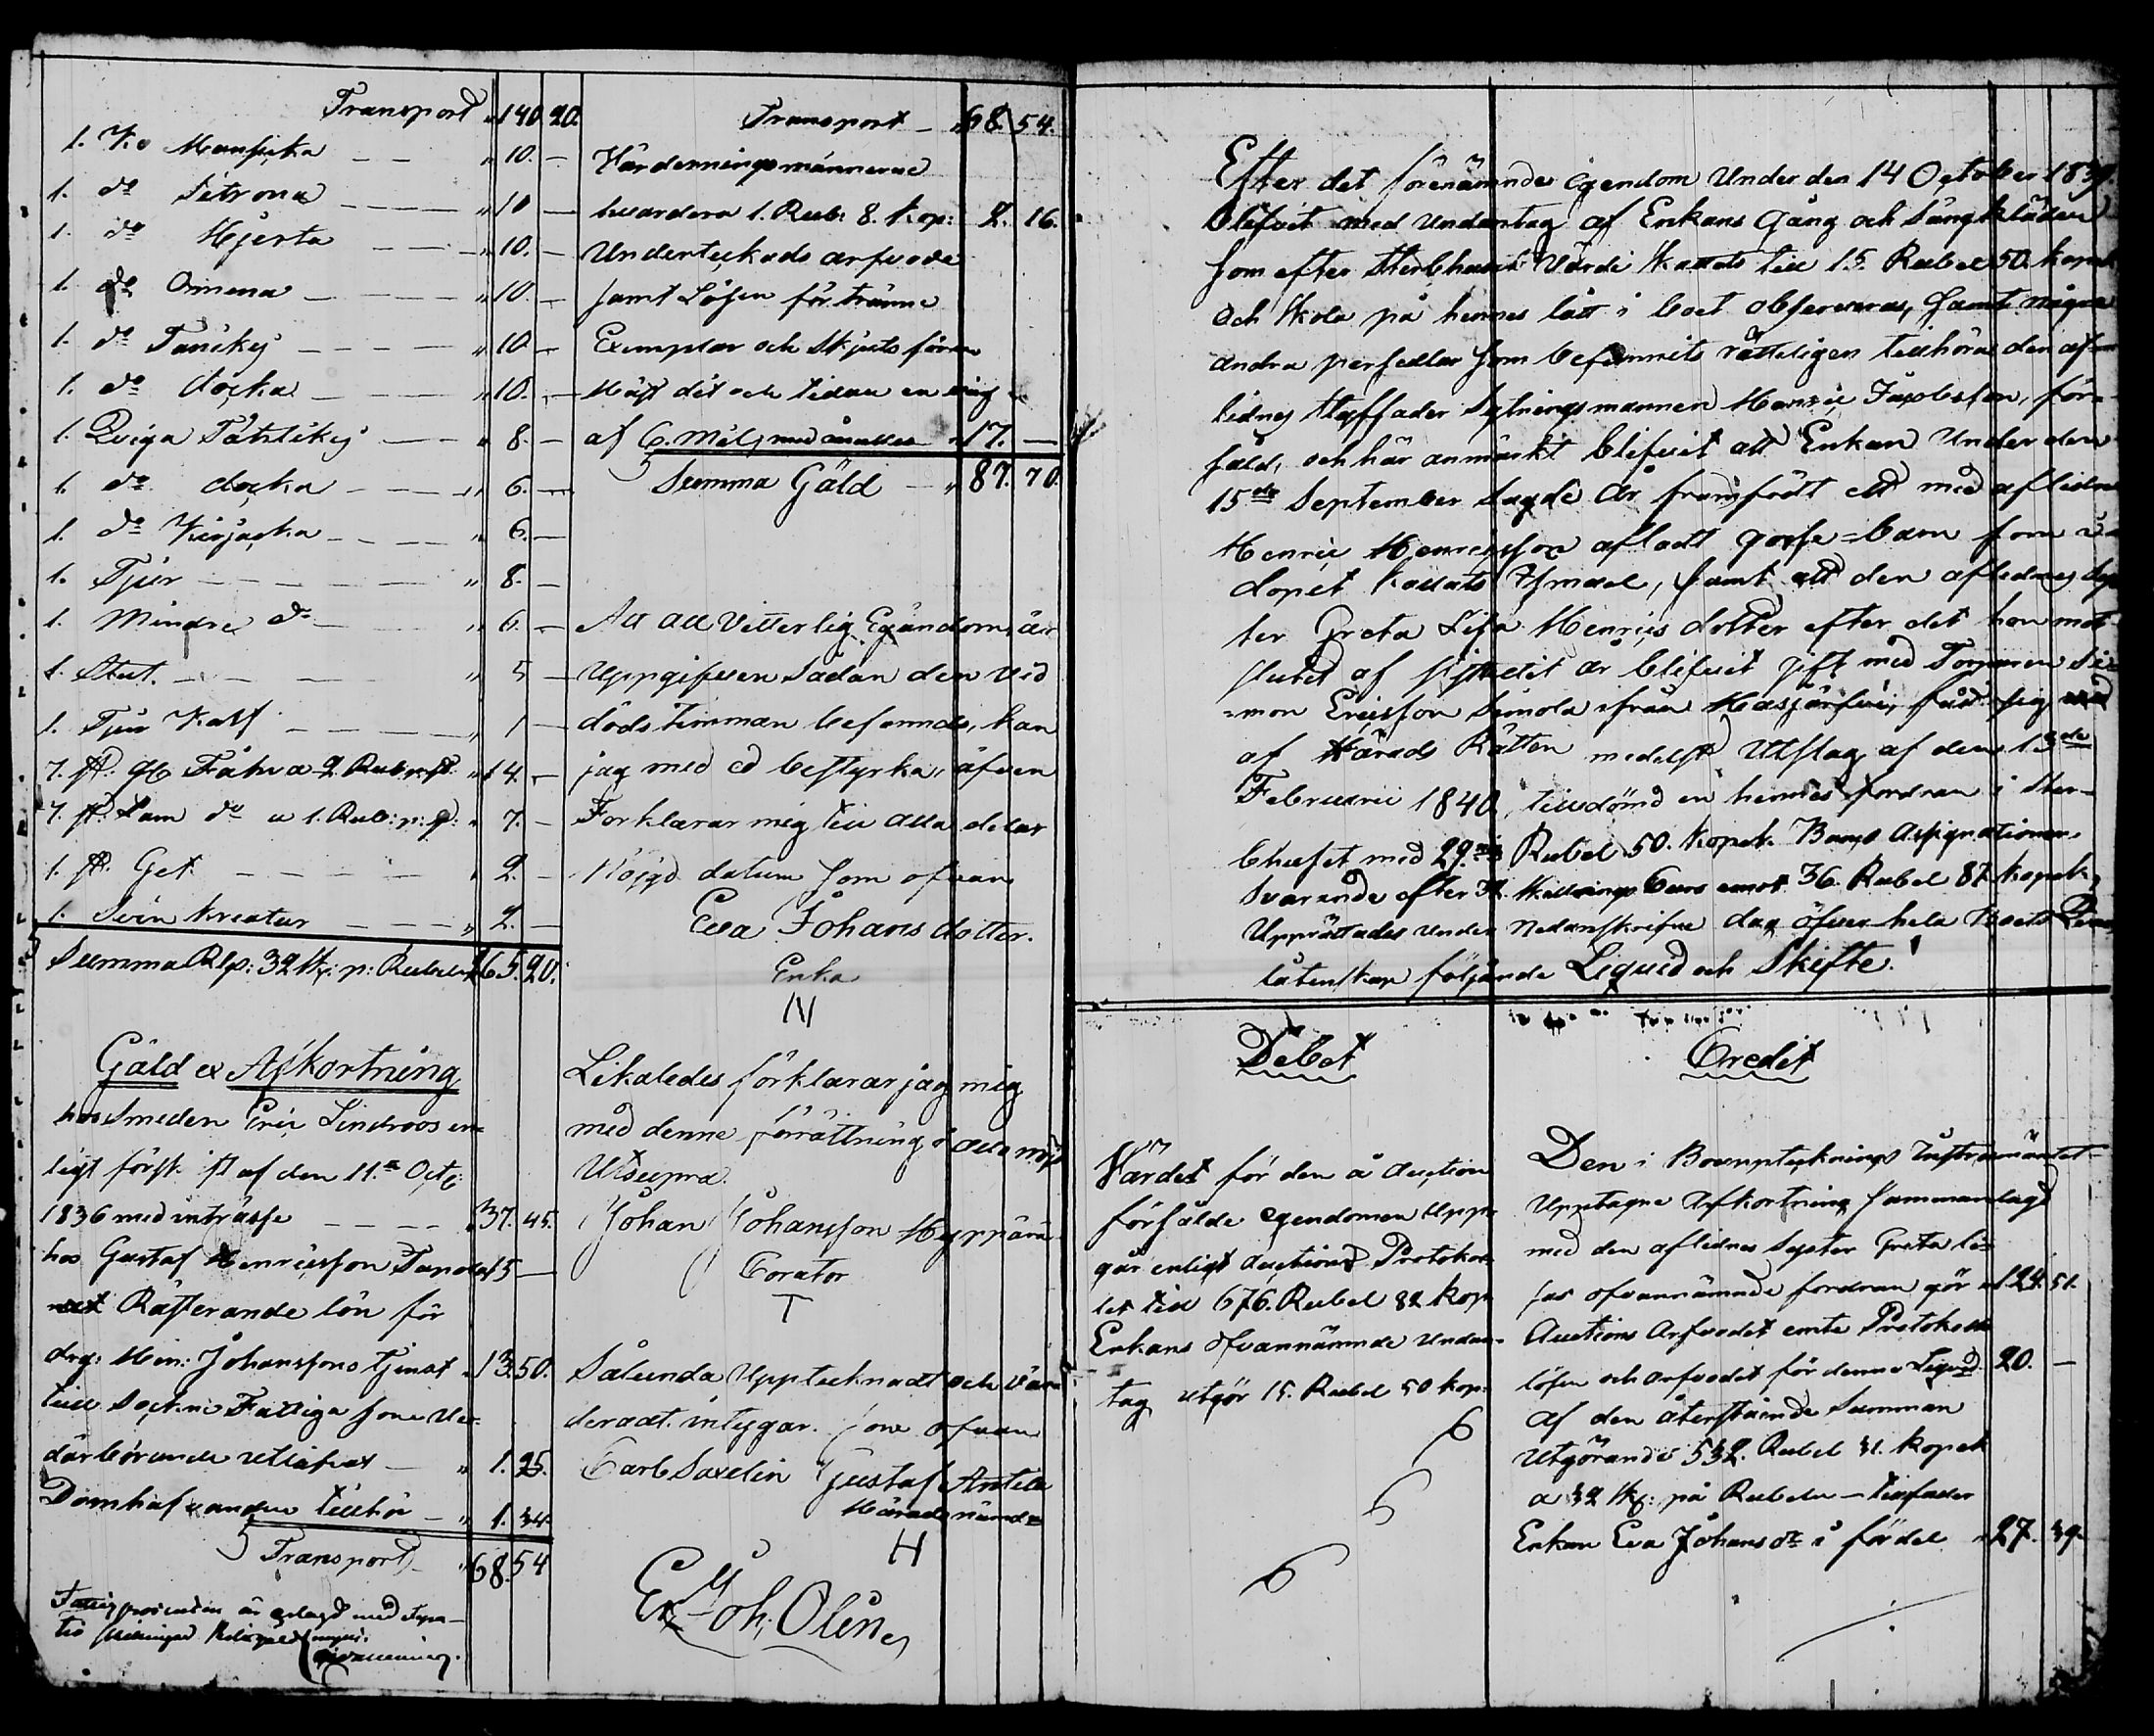 Transport 140 20.
1. Ko Mansicka — — " 10. —
1. do Sitrona — — " 10 —
1. do Hjerta — — " 10. —
1. do Omena — — " 10. —
1. do — — " 10. —
1. do docka — — " 10. —
1. Qviga Tähtikej — — " 8. —
1. do docka — — " 6. —
1. do Kirjacka — — " 6. —
1. Tjur — — " 8. —
1. Mindre do — — " 6. —
1. Stut. — — " 5 —
1. Tjur Kalf — — " 1 —
7. st. Fåhr a 2 Rub: p: st: " 14. —
7. st. Lam do a 1. Rub: p: st: " 7. —
1. st. Get — — 2. —
1. Svin kreatur — — " 2. —
Summa Rbs: 32 sk: p: Rubeln 265. 20.
Gäld & Afkortning
hos Smeden Eric Lindroos en-
ligt förskr: ft af den 11.a Octb:
1836 med inträsse — — 37. 45.
hos Gustaf Henricsson 15 —
Resterande lön för
drg: Hin: Johanssons tjenst " 13. 50.
till Sockne Fattiga som
därbörande — " 1. 25.
Domhafvanden tillhör — " 1. 34.
Transport " 68. 54
är erlagd med
Transport — " 68. 54.
Värderingsmännerne
hvardera 1. Rub: 8. Kop: 2. 16.
Undertecknads arfvode
samt Lösen för tränne
Exemplar och Skjuts före
Häst dit och tidan en väg
af 6. Mil, med — " 17. —
Summa Gäld — " 87. 70.
At all Vitterlig Egendom är
Uppgifven Sådan den vid
döds timman befanns, kan
jag med ed bestyrka, äfven
Förklarar mig till alla delar
Nöjgd datum som ofvan
Eva Johans dotter.
Enka
Likaledes förklarar jag mig
med denne förättning i alla nöjd
Utsupra
Johan Johansson
Corator
Sålunda Upptecknadt och vär-
deradt. intygar. som ofvan
Carl Saxelin Gustaf Antila
Härads nämd=
Er. Joh. Olin
Efter det förenämnde egendom Under den 14 October 1839.
blifvit med Undantag af Enkans Gång och Sängkläder
som efter Sterbhusets Värde Skattats till 15. Rubel 50. kopek
Och Skola på hennes lått i boet observeras, samt några
andra persedlar som befunnits rätteligen tillhöra den af-
lidnes Styffader Sytningsmannen Henric Jacobsson, för-
såld, och här anmärkt blifvit att Enkan Under den
15de September Sagde år framfödt ett med aflidne
Henric Henricsson afladt gosse=barn som i
dopet kallats Ismael, samt att den aflednes Sys-
ter Greta Lisa Henrics dotter efter det hon mot
slutet af sistledit år blifvit gift med Torparen Si-
=mon Ericsson Simola ifrån fådt sig
af Härads Rätten medelst Utslag af den 13de
Februarii 1840, tilldömd en hennes fordran i Ster-
bhuset med 29. Rubel 50. kopek. Banco Assignationer
Svarande efter 32. Skillings Curs emot 36. Rubel 87 kopek,
Upprättades under Nedanskrifne dag öfver hela Boets
låtenskap följande Liqvid och Skifte!
Debet
Värdet för den å Auction
försålde egendomen Upp-
går enligt Auctions Protokol-
let till 676. Rubel 82 kop
Enkans ofvannämnde Undan-
tag utgör 15. Rubel 50 kop.
Credit
Den i Bouppteknings Instrumäntet
Upptagne Afkortning Sammanlagd
med den aflidnes Syster Greta Li-
sas ofvannämnde fordran gör " 124. 51.
Auctions Arfvodet emte Protokolls
lösen och arfvodet för denne Liqvid 20. —
Af den återstående Summan
Utgörande 532. Rubel 31. kopek
a 32 sk: på Rubeln — tillfaller
Enkan Eva Johans dr i fördel " 27. 39.